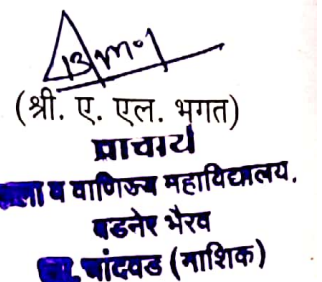 (श्री. ए. एल. भगत)
प्राचार्य
कला व वाणिज्य महाविद्यालय.
वडनेर भैरव
ता. चांदवड (नाशिक)